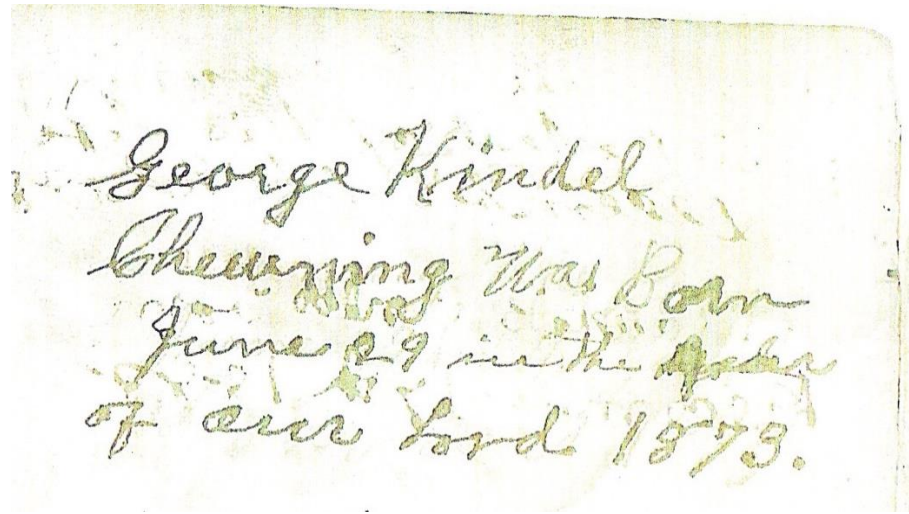 George Kindel
Chewning Was Born
June 29 in the
of our Lord 1873.